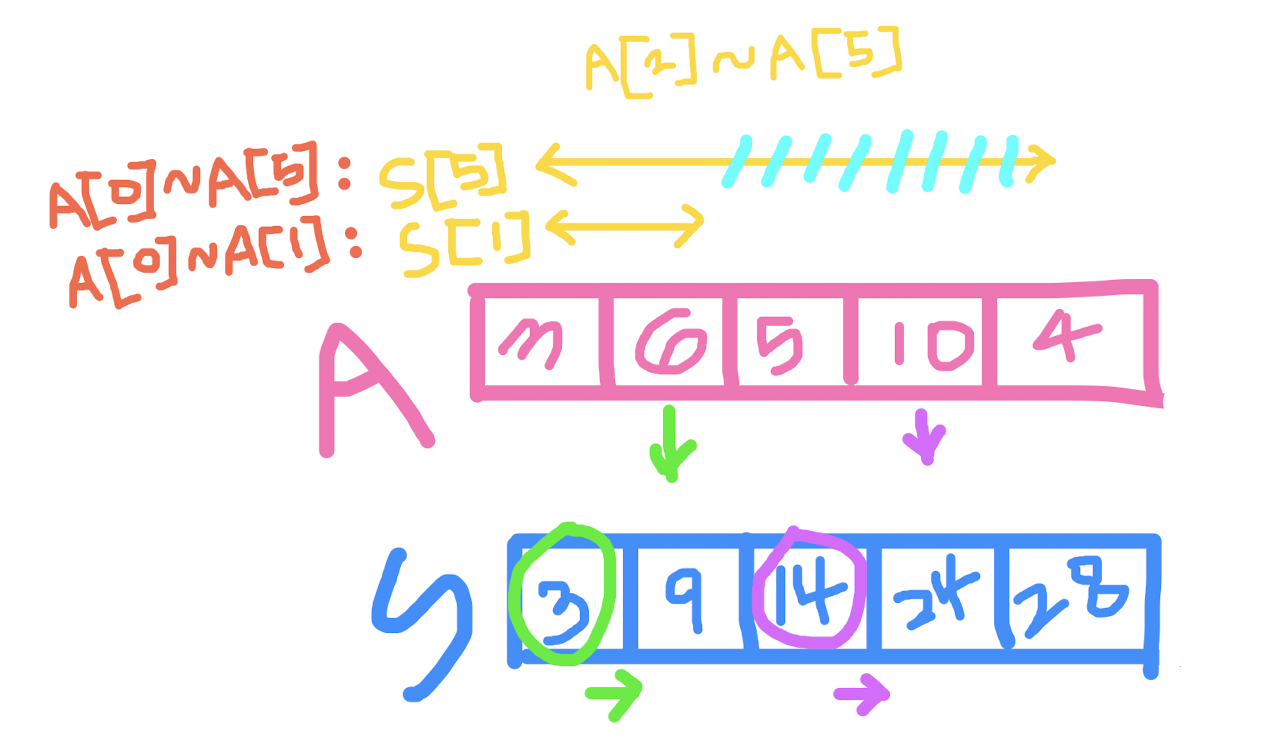 A[2]~A[5]
A[0]~A[5]: S[5]
A[0]~A[1]: S[1]
A 3 6 5 10 4
S 3 9 14 24 28